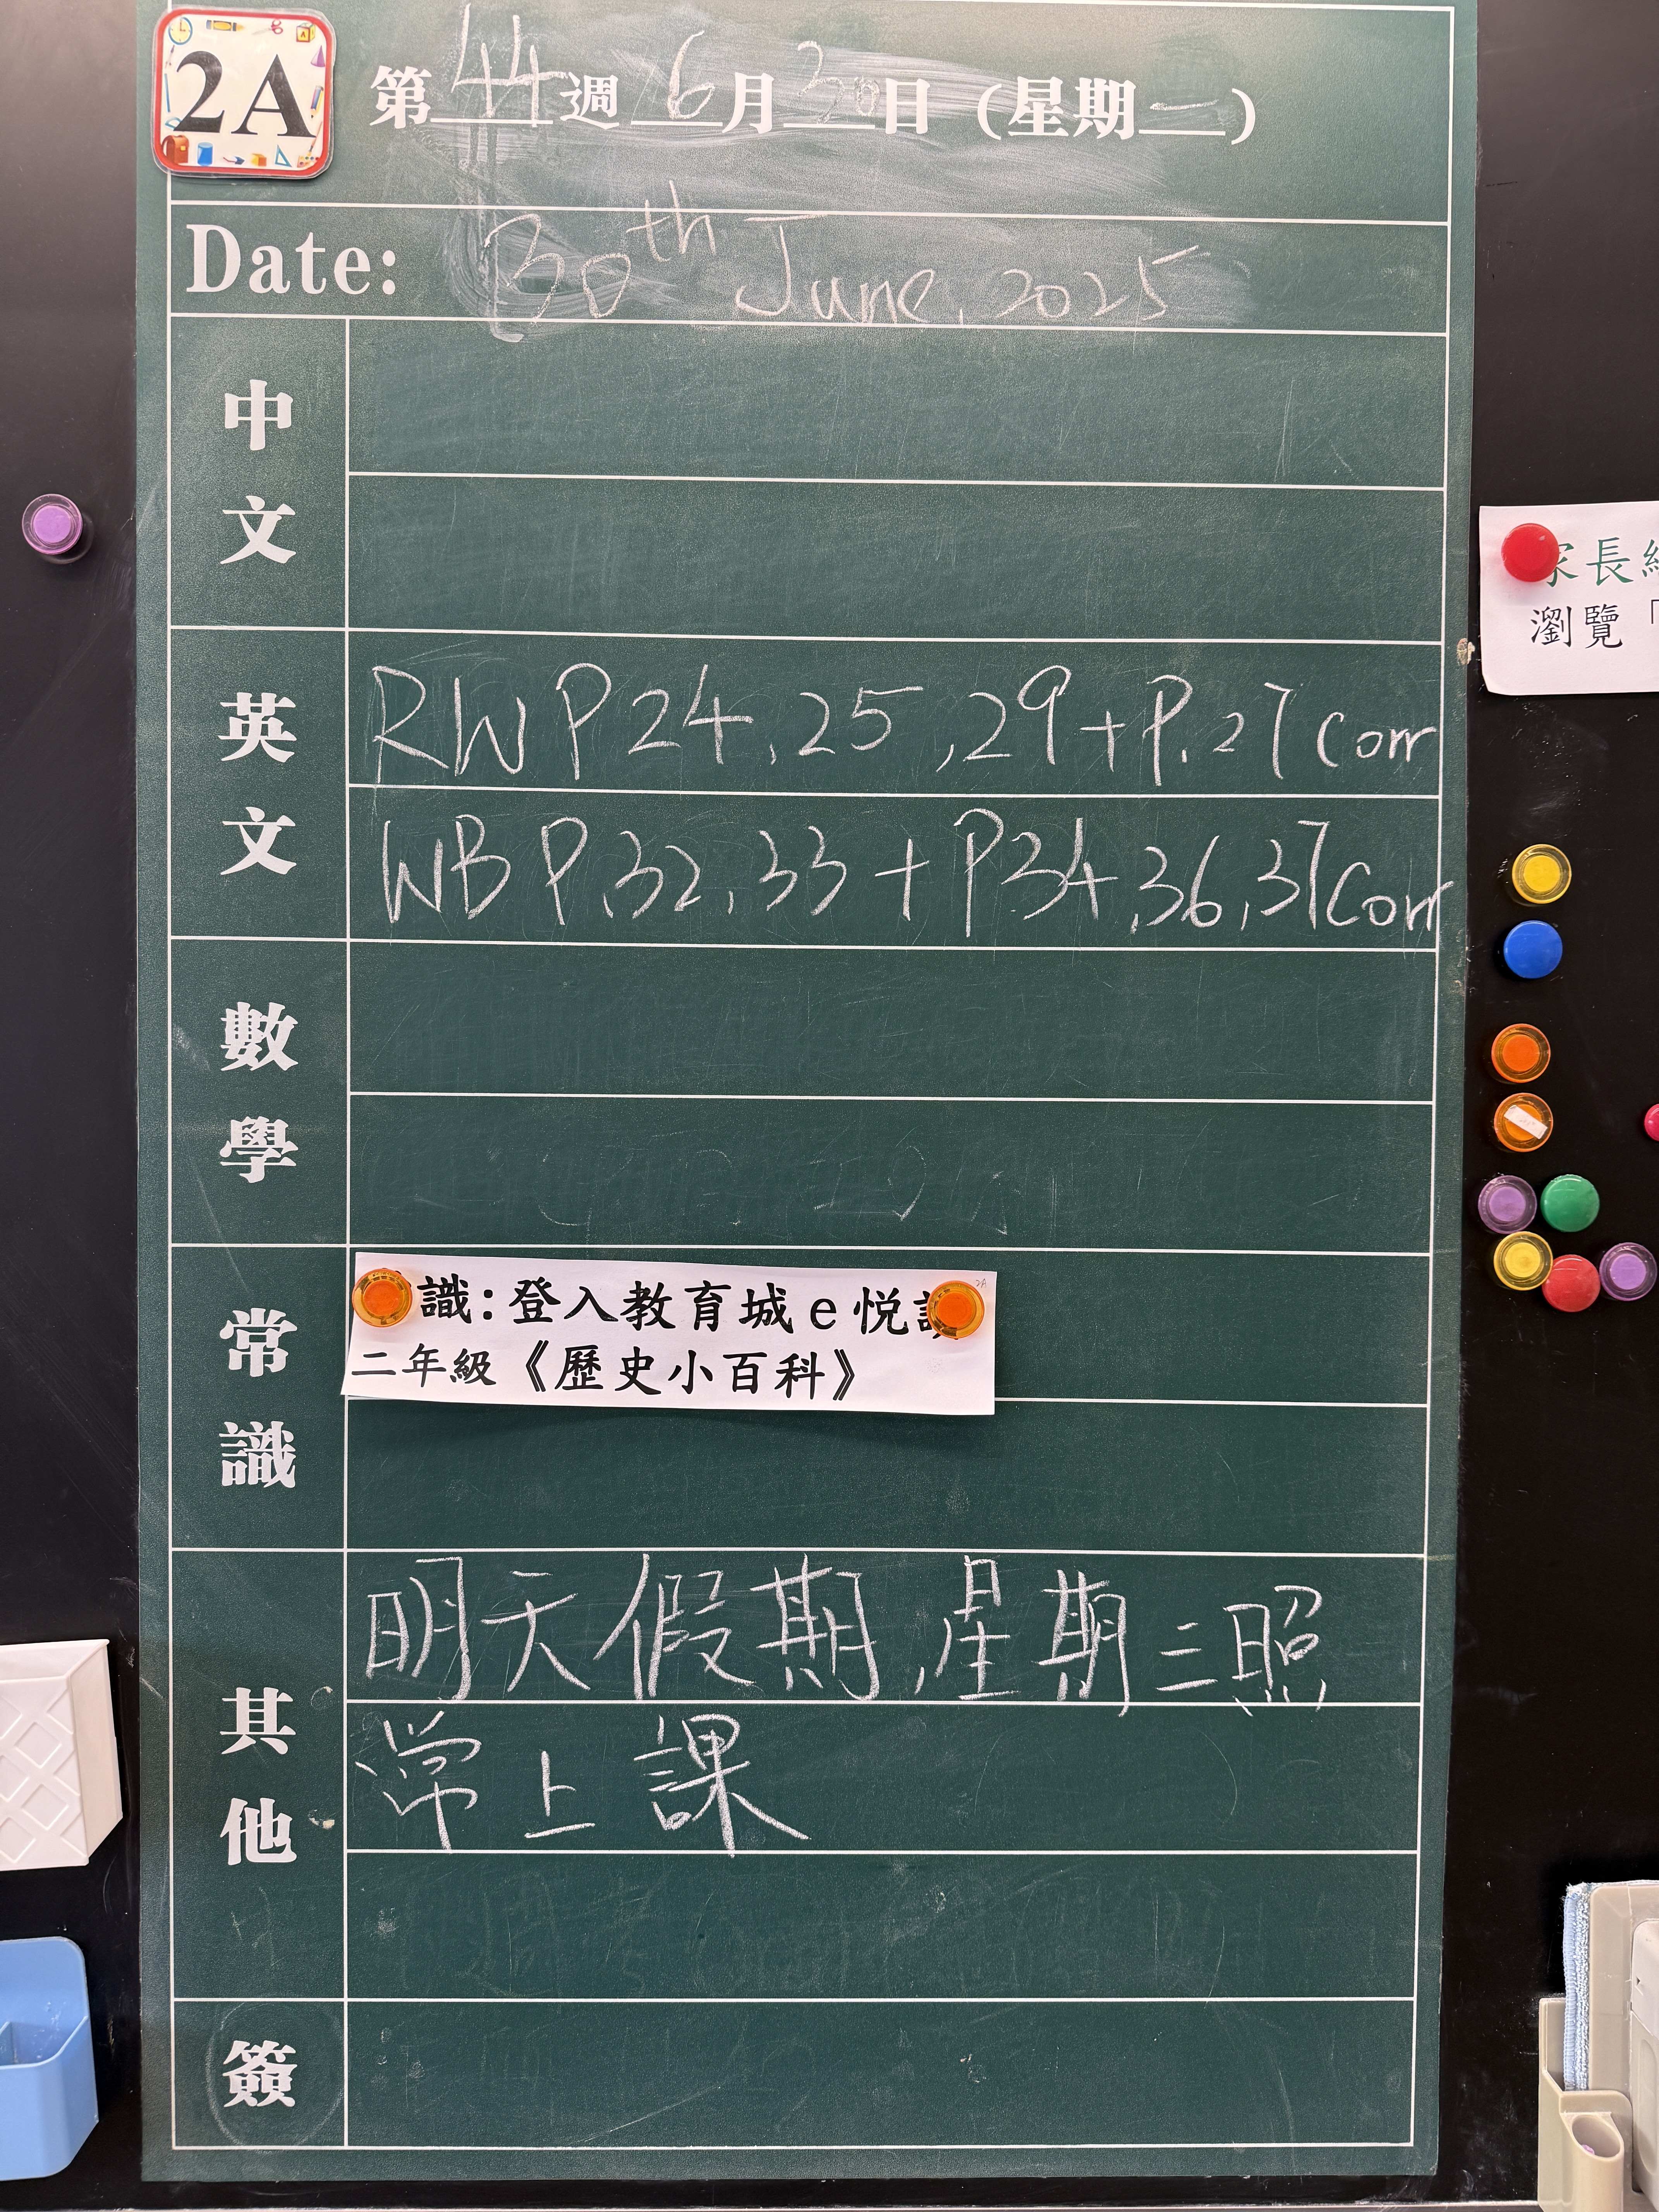 2A
第44週 6月30日 (星期一)
Date: 30th June, 2025
中文
英文
RW P24, 25, 29 + P.27 Corr
WB P.32, 33 + P34, 36, 37 Corr
數學
常識
識:登入教育城e悦
2A
二年級《歷史小百科》
其他
明天假期,星期三照
常上課
簽
家長
瀏覽「